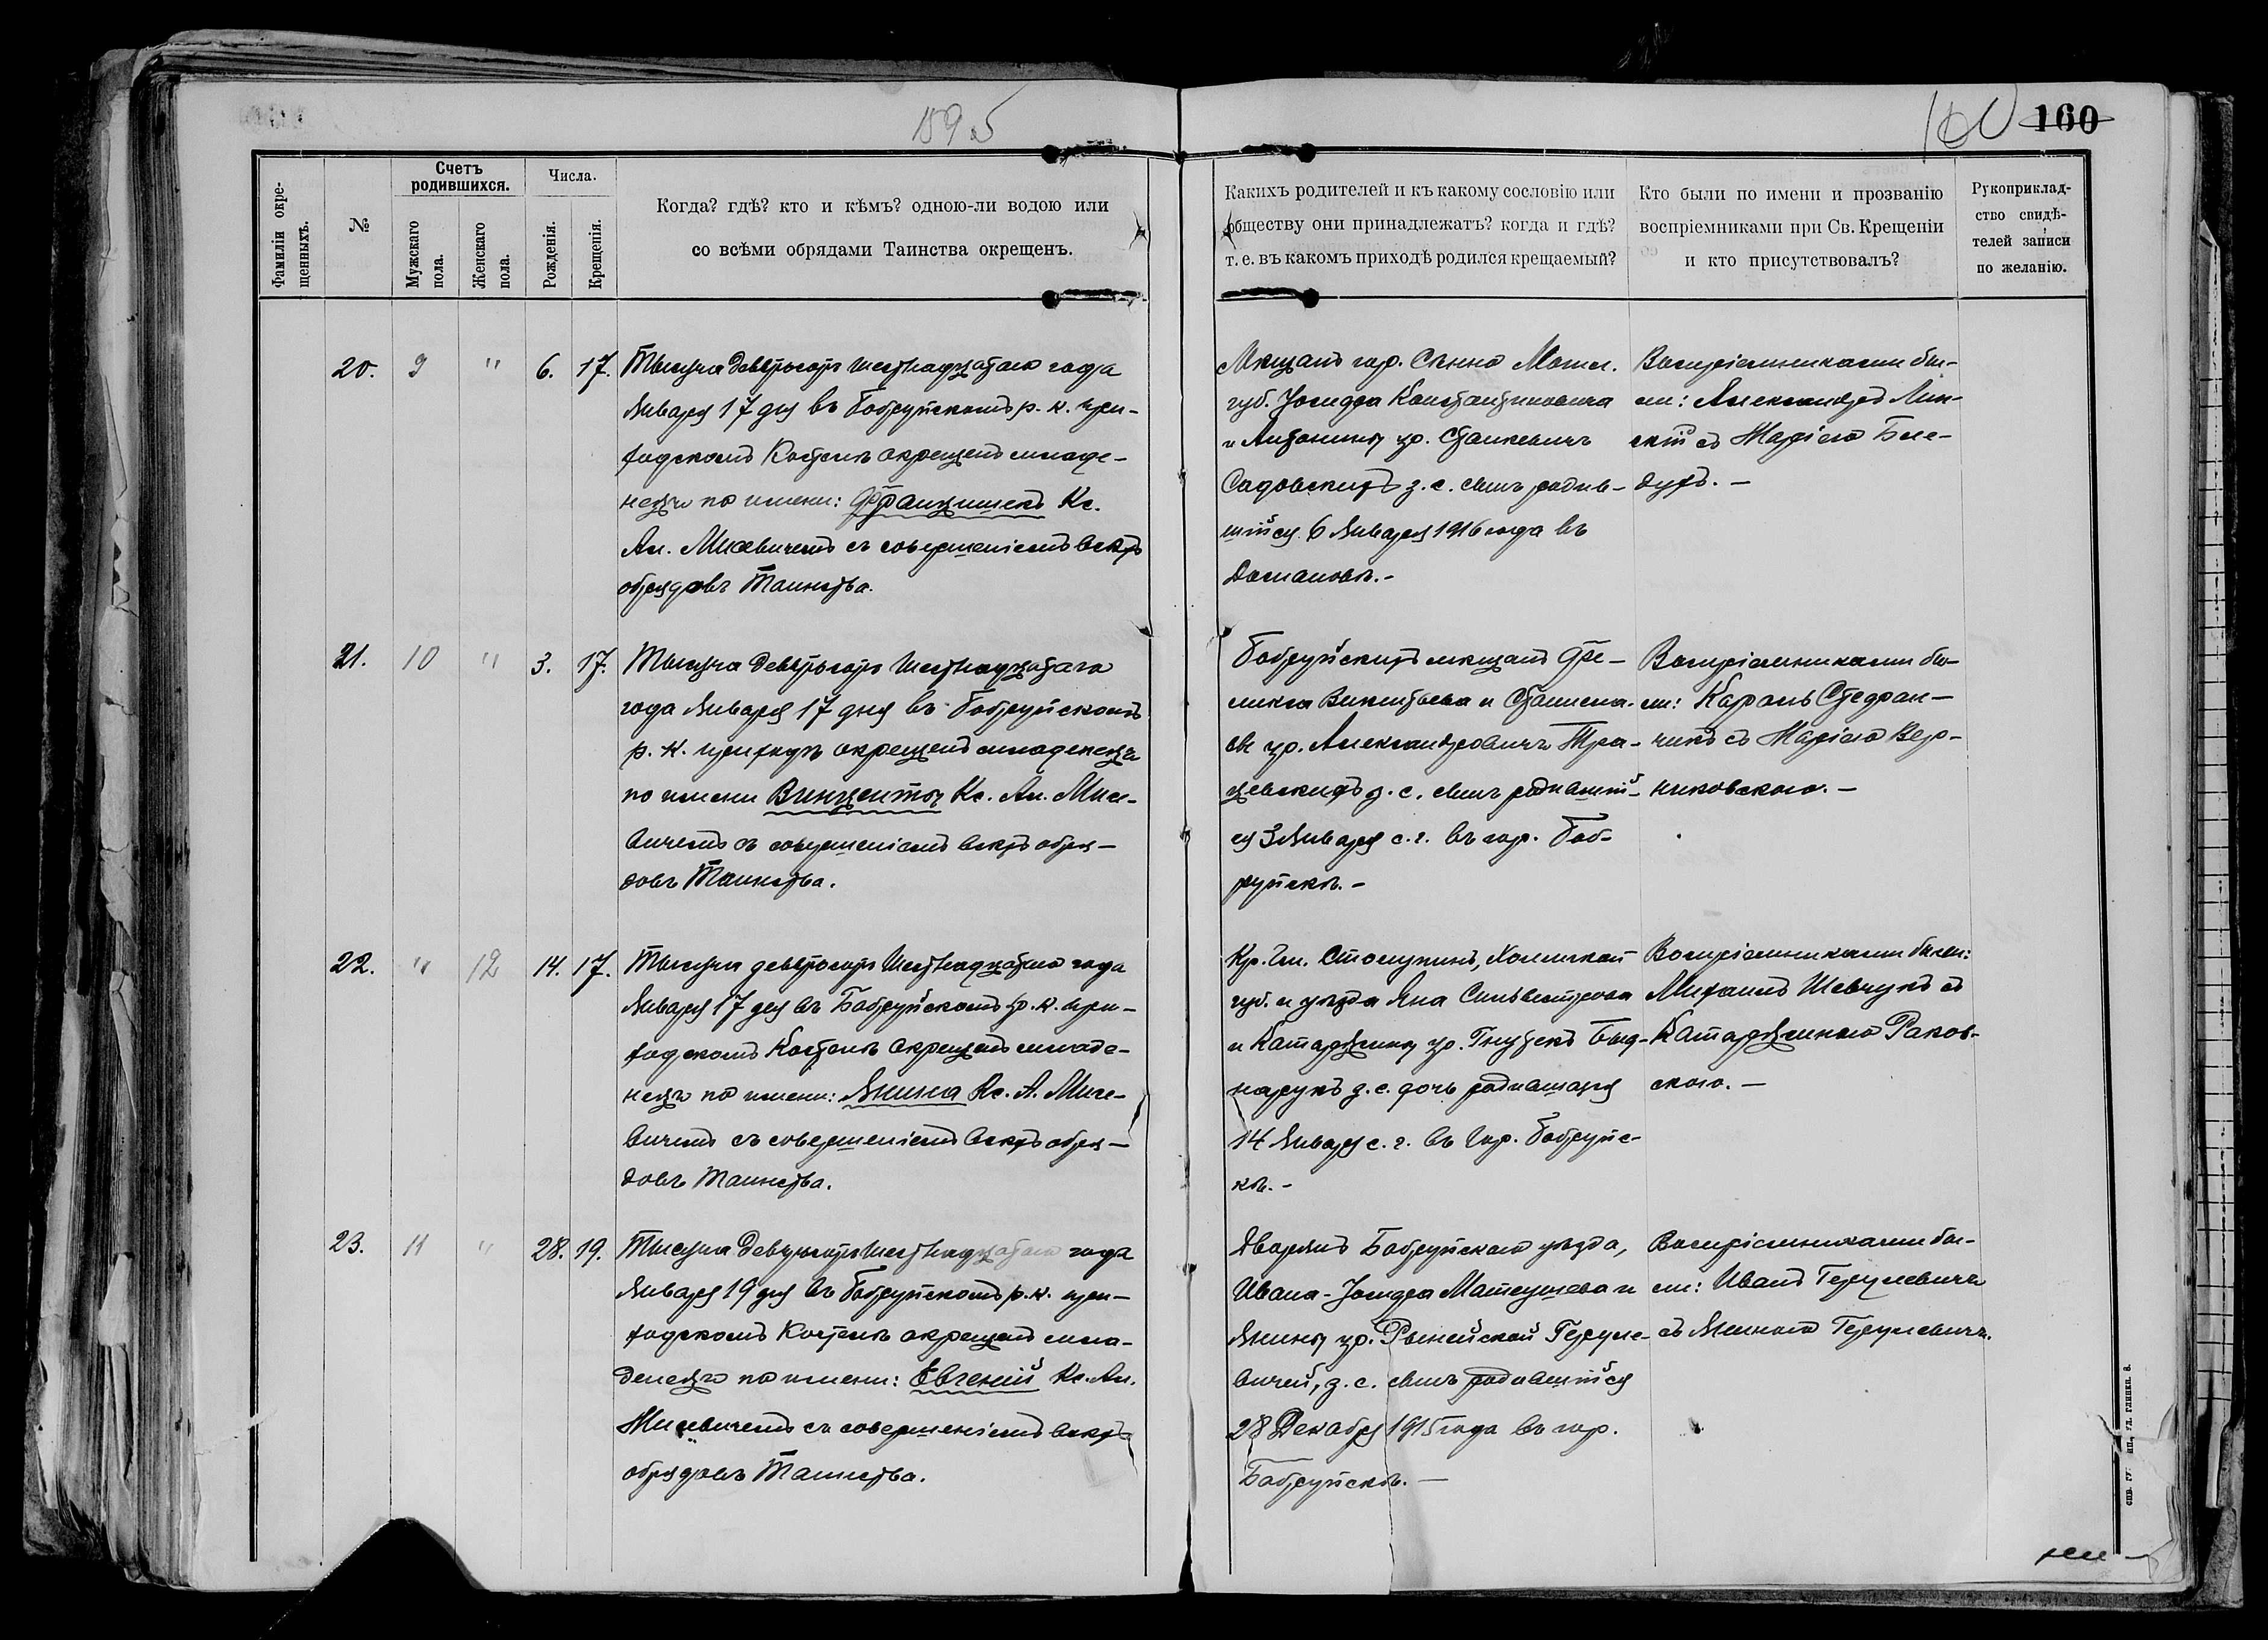 159 об
160 160
Фамиліи окре-
щенныхъ.
№
Счетъ
родившихся.
Мужскаго
пола.
Женскаго
пола.
Числа.
Рожденія.
Крещенія.
Когда? гдѣ? кто и кѣмъ? одною-ли водою или
со всѣми обрядами Таинства окрещенъ.
Какихъ родителей и къ какому сословію или
обществу они принадлежатъ? когда и гдѣ?
т. е. въ какомъ приходѣ родился крещаемый?
Кто были по имени и прозванію
воспріемниками при Св. Крещеніи
и кто присутствовалъ?
Рукоприклад-
ство свидѣ-
телей записи
по желанію.
20. 9 " 6. 17.
Тысяча девятьсотъ шестнадцатаго года
Января 17 дня въ Бобруйскомъ р. к. при-
ходскомъ Костелѣ окрещенъ младе-
нецъ по имени: Францишекъ Кс.
Ал. Мисевичемъ съ совершеніемъ всѣхъ
обрядовъ Таинства.
Мѣщанъ гор. Сѣнно Могил.
губ. Іосифа Константиновича
и Антонины ур. Станкевичъ
Садовскихъ з. с. сынъ родив-
шійся 6 Января 1916 года въ
Домановѣ.-
Воспріемниками бы-
ли: Александръ Лин-
скій съ Маріею Бле-
духъ. -
21. 10 " 3. 17.
Тысяча девятьсотъ шестнадцатаго
года Января 17 дня въ Бобруйскомъ
р. к. приходѣ окрещенъ младенецъ
по имени Винцентый Кс. Ал. Мисе-
вичемъ съ совершеніемъ всѣхъ обря-
довъ Таинства.
Бобруйскихъ мѣщанъ Фе-
ликса Викентьева и Станисла-
вы ур. Александровичъ Тра-
цевскихъ з. с. сынъ родившій-
ся 3 Января с. г. въ гор. Боб-
руйскѣ. -
Воспріемниками бы-
ли: Кароль Стефан-
чикъ съ Маріею Вер-
никовскою. -
22. " 12 14. 17.
Тысяча девятьсотъ шестнадцатаго года
Января 17 дня въ Бобруйскомъ р. к. при-
ходскомъ Костелѣ окрещенъ младе-
нецъ по имени: Янина Кс. А. Мисе-
вичемъ съ совершеніемъ всѣхъ обря-
довъ Таинства.
Кр. Гм. Столпинъ, Холмской
губ. и уѣзда Яна Сильвестрова
и Катаржины ур. Гнутекъ Бод-
нарукъ з. с. дочь родившаяся
14 Января с. г. въ гор. Бобруйс-
кѣ. -
Воспріемниками были:
Михаилъ Шевчукъ съ
Катаржиною Раков-
скою. -
23. 11 " 28. 19.
Тысяча девятьсотъ шестнадцатаго года
Января 19 дня въ Бобруйскомъ р. к. при-
ходскомъ Костелѣ окрещенъ мла-
денецъ по имени: Евгеній Кс. Ал.
Мисевичемъ съ совершеніемъ всѣхъ
обрядовъ Таинства.
Дворянъ Бобруйскаго уѣзда,
Ивана-Іосифа Матеушева и
Янины ур. Рынейской Герцле-
вичей, з. с. сынъ родившійся
28 Декабря 1915 года въ гор.
Бобруйскѣ. -
Воспріемниками бы-
ли: Иванъ Герцлевичъ
съ Яниною Герцлевичъ.